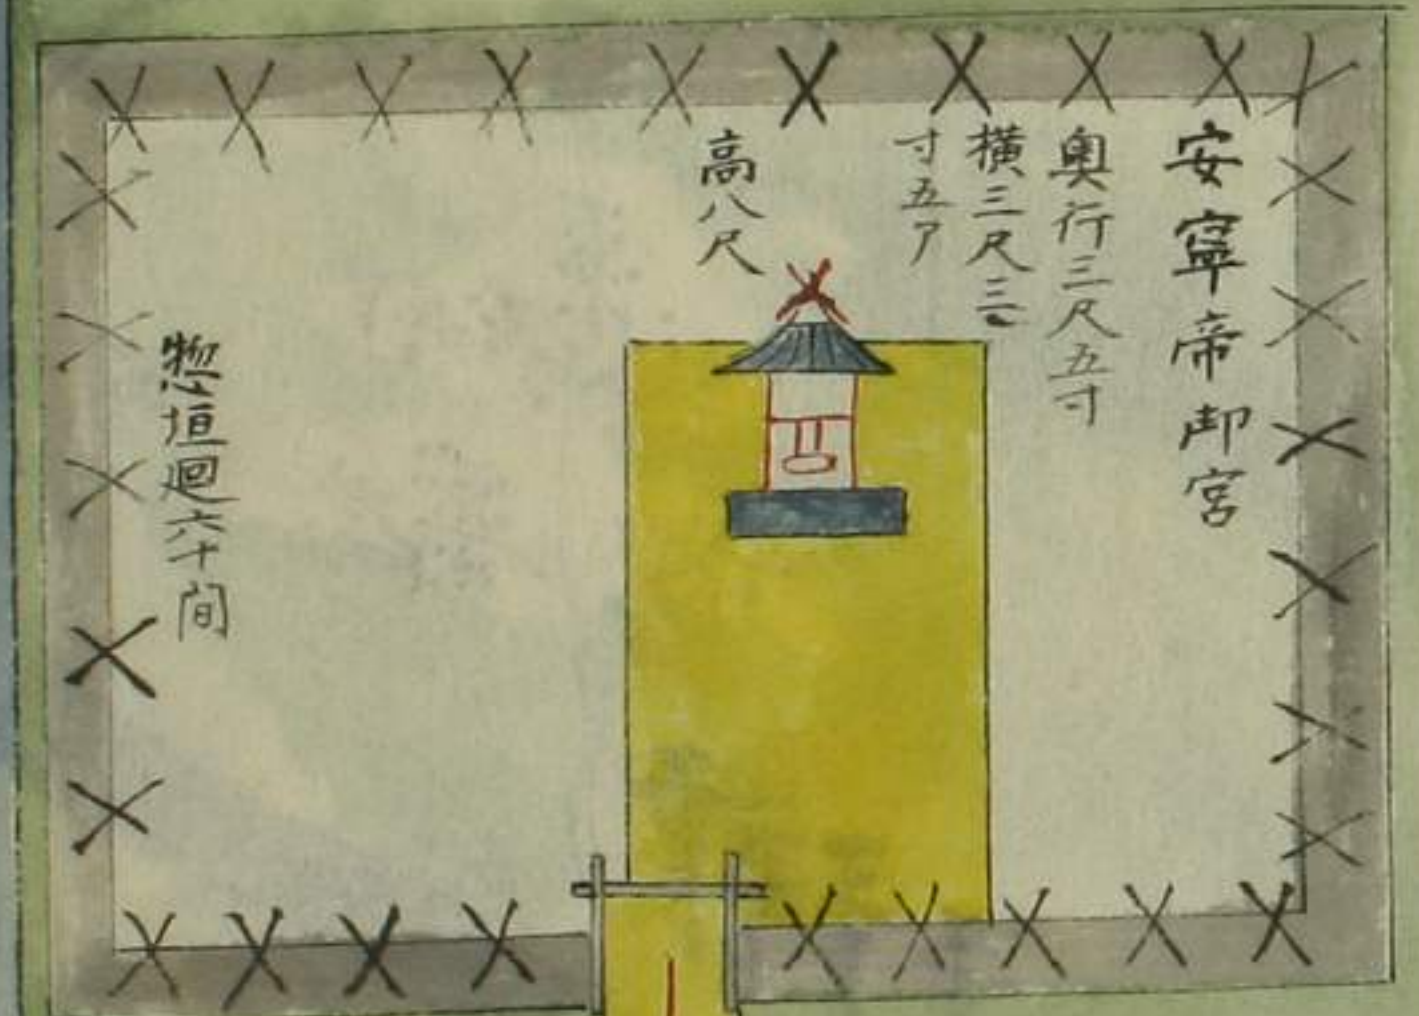 安寧帝御宮
奥行三尺五寸
横三尺三
寸五ア
高八尺
惣垣廻六十間